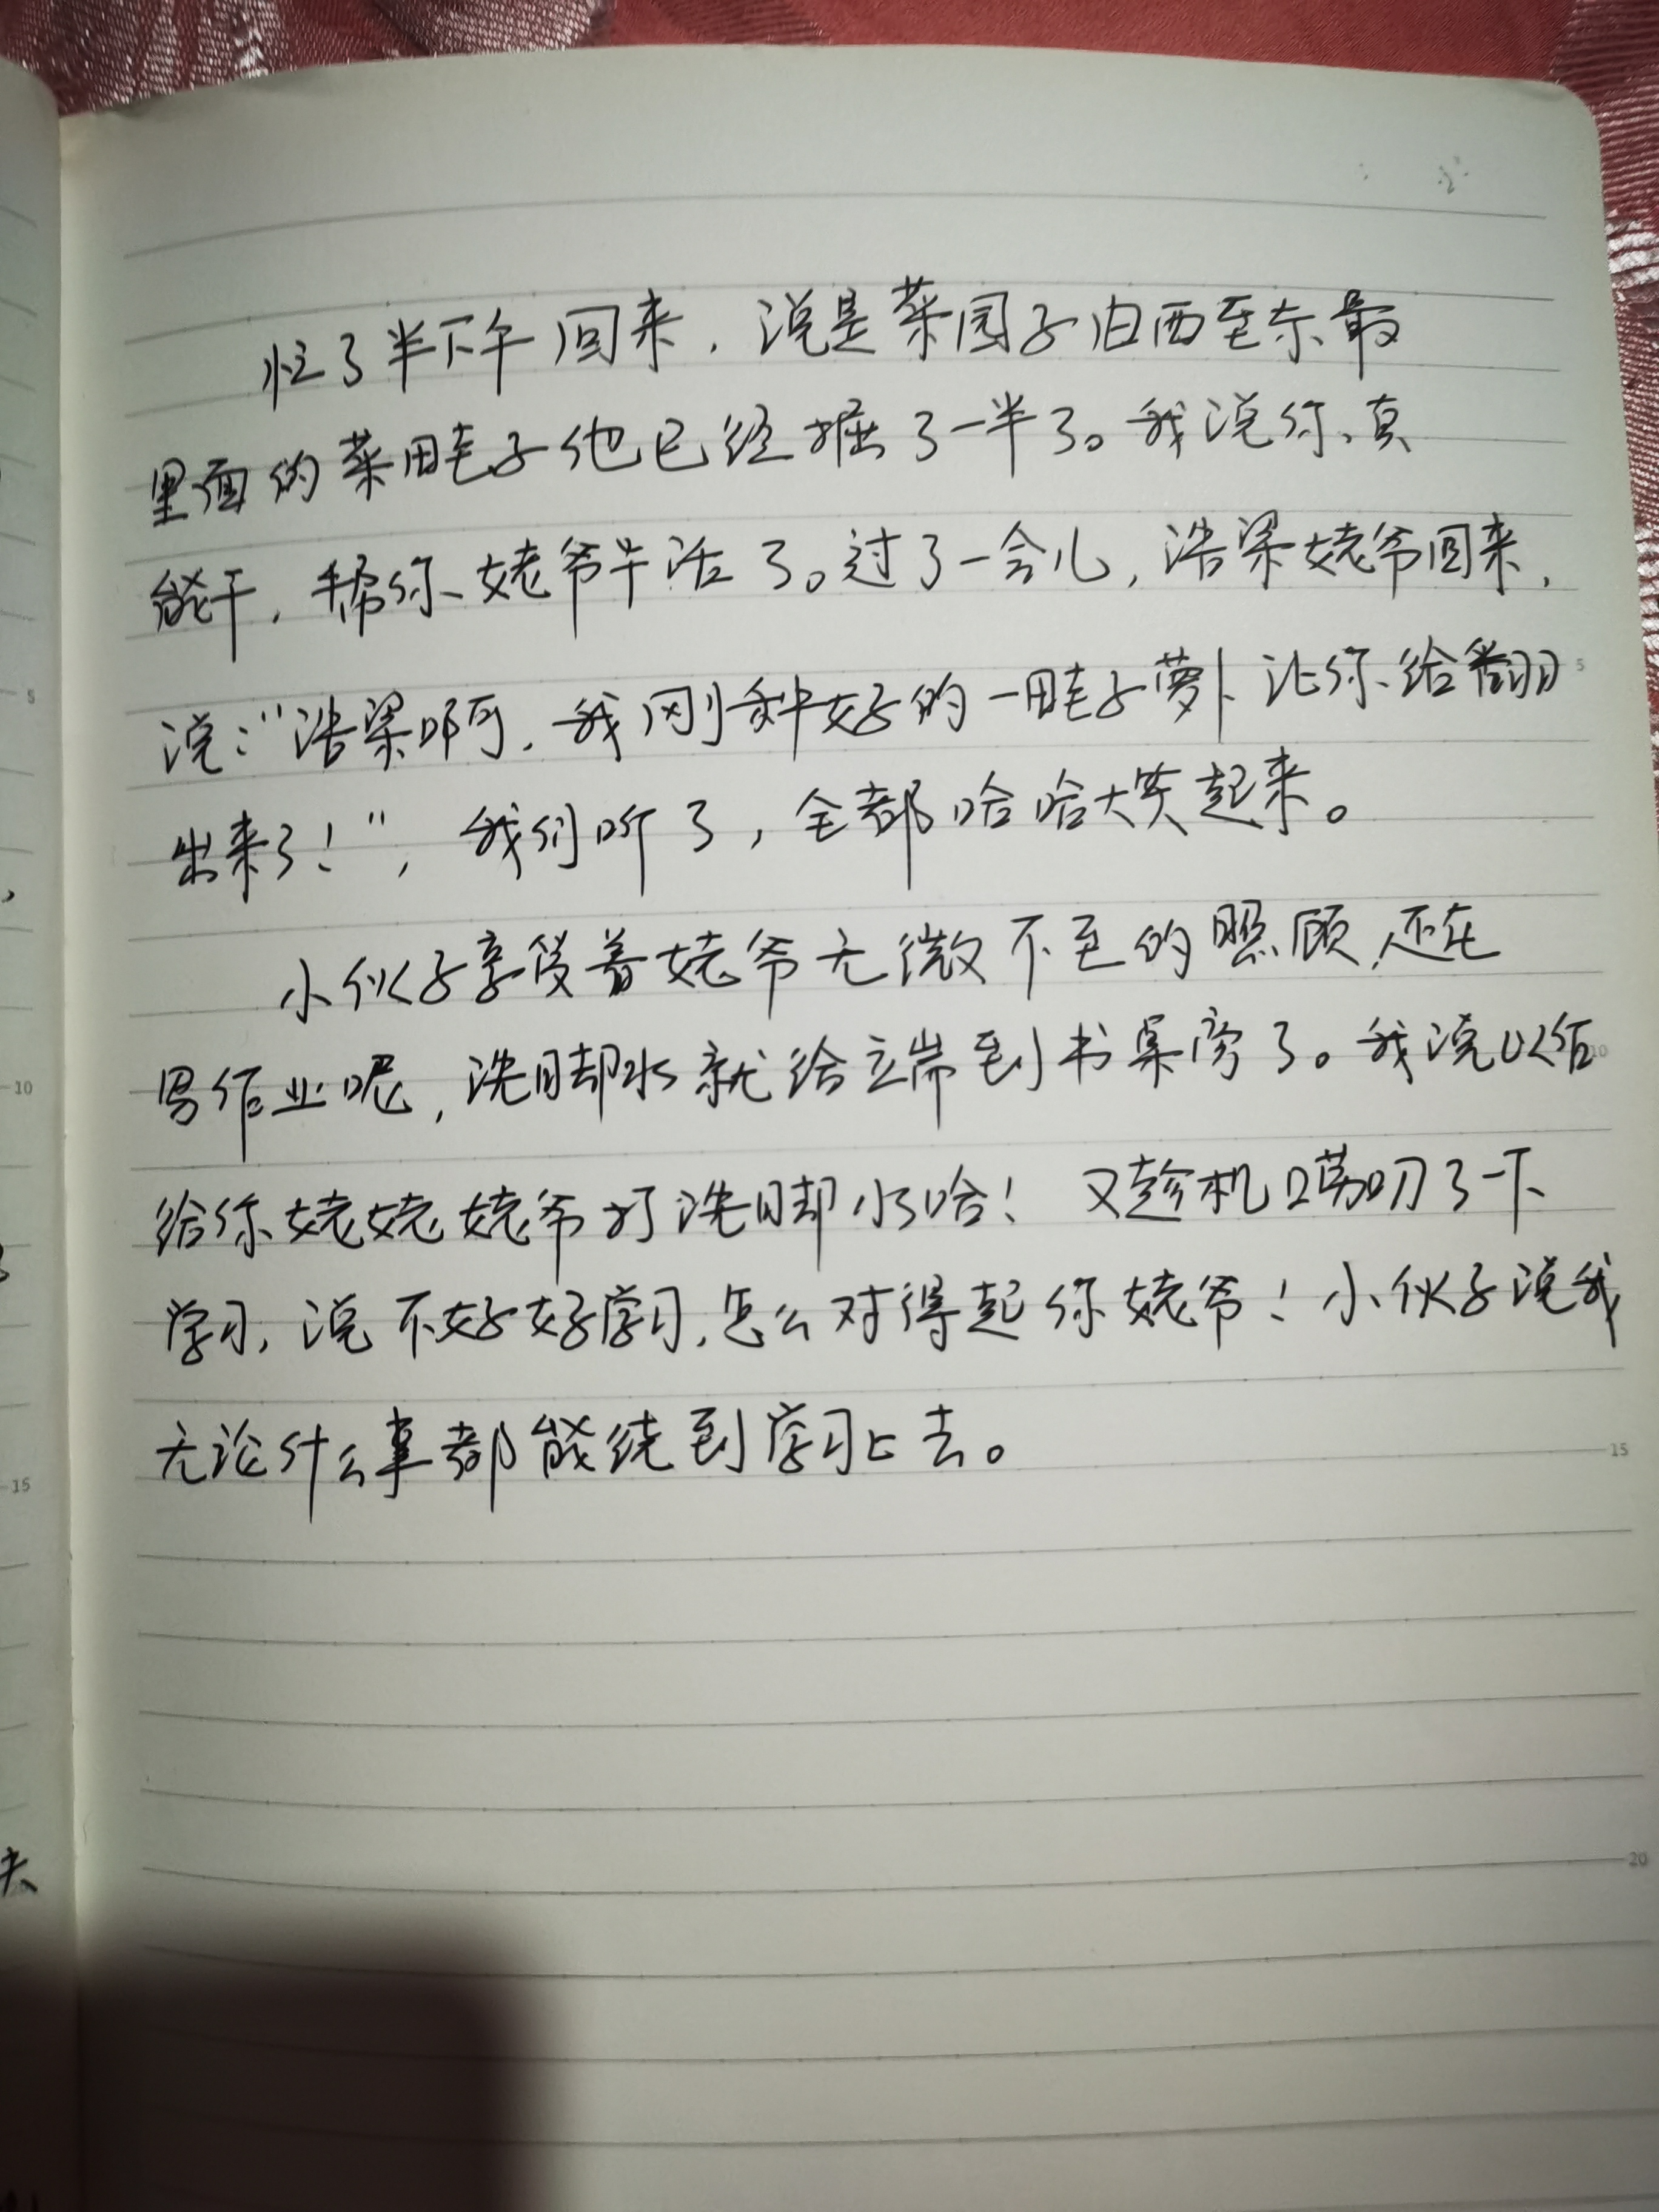 忙了半下午回来，说是菜园子由西至东最
里面的菜畦子他已经掘了一半了。我说你真
能干，帮你姥爷干活了。过了一会儿，浩梁姥爷回来，
说：“浩梁啊，我刚种好的一畦子萝卜让你给翻
出来了！”，我们听了，全都哈哈大笑起来。
小伙子享受着姥爷无微不至的照顾，还在
写作业呢，洗脚水就给端到书桌旁了。我说以后
给你姥姥姥爷打洗脚水哈！又趁机唠叨了一下
学习，说不好好学习，怎么对得起你姥爷！小伙子说我
无论什么事都能绕到学习上去。
5
10
15
20
5
10
15
夫